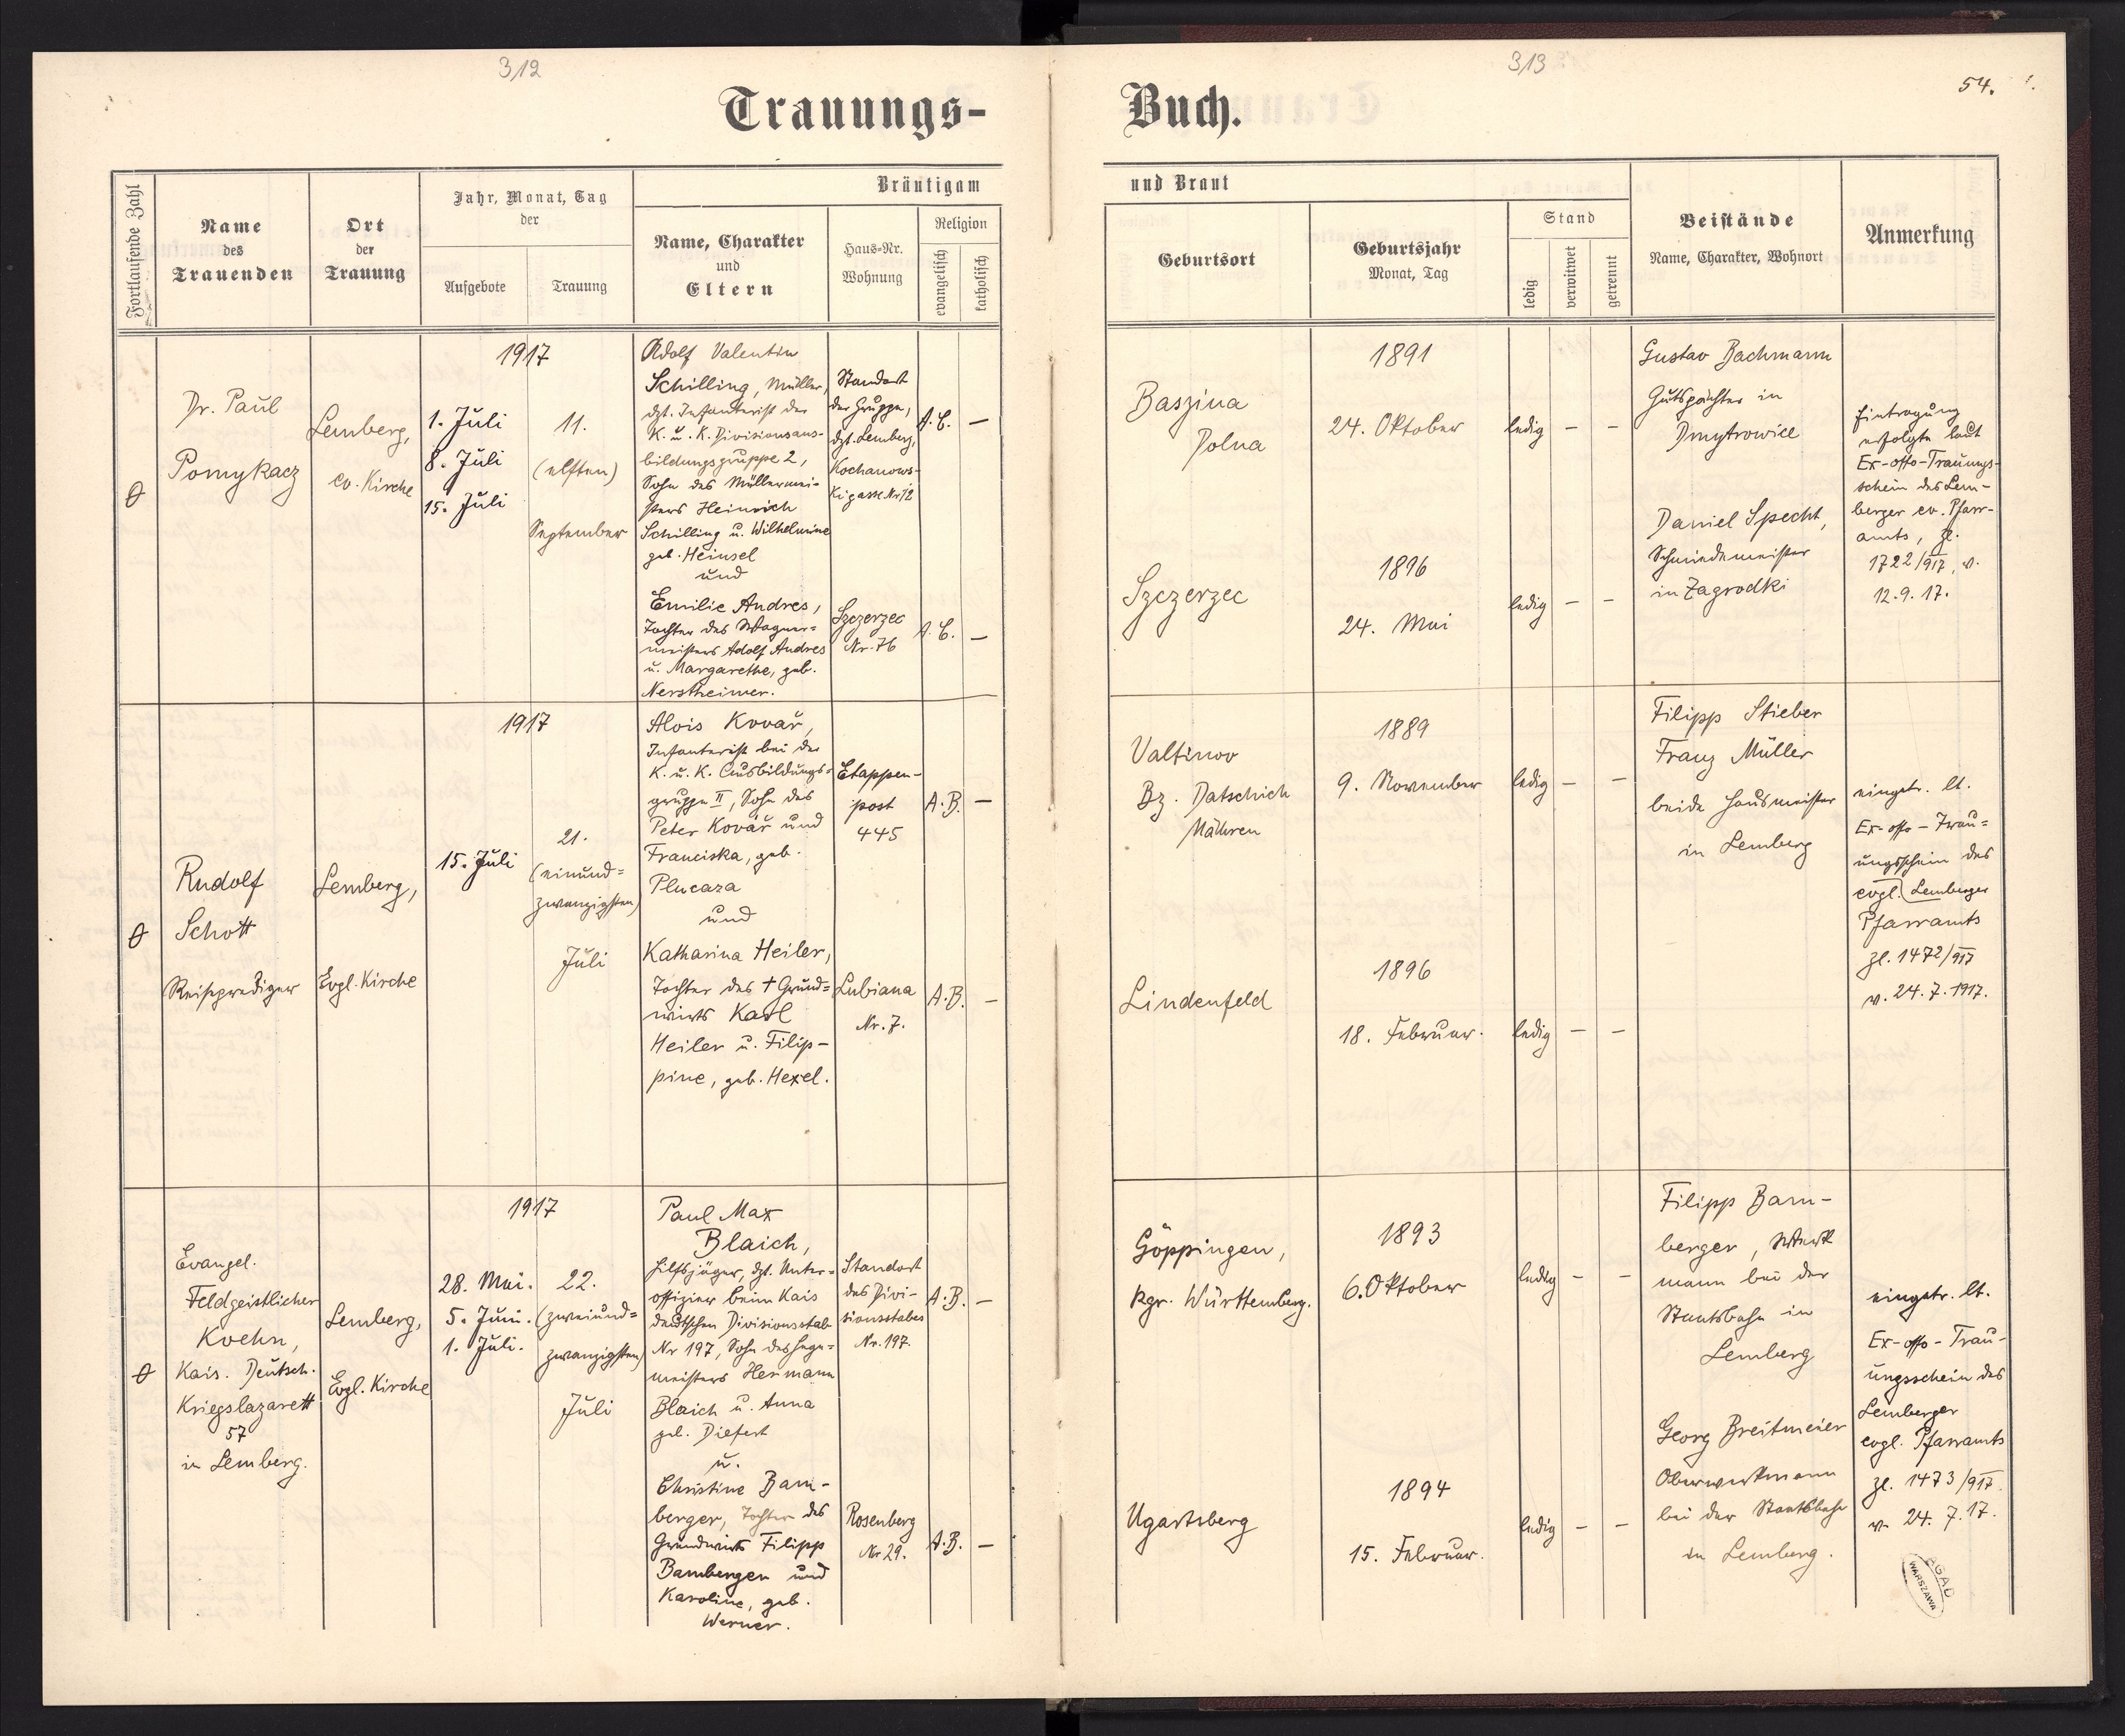 312
313
54.
Trauungs-
Buch.
Fortlaufende Zahl
Name
des
Trauenden
Ort
der
Trauung
Jahr, Monat, Tag
der
Aufgebote
Trauung
Bräutigam
Name, Charakter
und
Eltern
Haus-Nr.
Wohnung
Religion
evangelisch
katholisch
und Braut
Geburtsort
Geburtsjahr
Monat, Tag
Stand
ledig
verwitwet
getrennt
Beistände
Name, Charakter, Wohnort
Anmerkung
0
Dr. Paul
Pomykacz
Lemberg,
ev. Kirche
1917
1. Juli
8. Juli
15. Juli
11.
(elften)
September
Adolf Valentin
Schilling, Müller,
dzt. Infanterist der
K. u. K. Divisionsaus-
bildungsgruppe 2,
Sohn des Müllermei-
sters Heinrich
Schilling u. Wilhelmine
geb. Heinsel
und
Emilie Andres,
Tochter des Wagner-
meisters Adolf Andres
u. Margarethe, geb.
Nerstheimer.
Standort
der Gruppe,
dzt. Lemberg,
Kochanows-
kigasse Nr 12
A. C. —
Szczerzec
Nr. 76
A. C. —
Baszina
Dolna
1891
24. Oktober
ledig — —
Szczerzec
1896
24. Mai
ledig — —
Gustav Bachmann
Gutspächter in
Dmytrowice
Daniel Specht,
Schmiedemeister
in Zagrodki
Eintragung
erfolgte laut
Ex-offo-Trauungs-
schein des Lem-
berger ev. Pfarr-
amts, Zl.
1722/917, v.
12.9.17.
0
Rudolf
Schott
Reiseprediger
Lemberg,
Evgl. Kirche
1917
15. Juli
21.
(einund=
zwanzigsten)
Juli
Alois Kovař,
Infanterist bei der
K. u. K. Ausbildungs=
gruppe II, Sohn des
Peter Kovář und
Franciska, geb.
Plucaza
und
Katharina Heiler,
Tochter des † Grund=
wirts Karl
Heiler u. Filip-
pine, geb. Hexel.
Etappen-
post
445
A.B. —
Lubiana
Nr. 7.
A.B. —
Valtinov
Bz. Datschich
Mähren
1889
9. November
ledig — —
Lindenfeld
1896
18. Februar.
ledig — —
Filipp Stieber
Franz Müller
beide Hausmeister
in Lemberg
eingetr. lt.
Ex-offo-Trau=
ungsschein des
evgl. Lemberger
Pfarramts
Zl. 1472/917
v. 24.7.1917.
0
Evangel.
Feldgeistlicher
Koehn,
Kais. Deutsch.
Kriegslazarett
57
in Lemberg.
Lemberg,
Evgl. Kirche
1917
28. Mai.
5. Juni.
1. Juli.
22.
(zweiund=
zwanzigsten)
Juli
Paul Max
Blaich,
Hilfsjäger, dzt. Unter=
offizier beim Kais
deutschen Divisionsstab
Nr 197, Sohn des Hege=
meisters Hermann
Blaich u. Anna
geb. Diefert
u.
Christine Bam-
berger, Tochter des
Grundwirts Filipp
Bamberger und
Karoline, geb.
Werner.
Standort
des Divi-
sionsstabes
Nr. 197.
A.B. —
Rosenberg
Nr 29.
A.B. —
Göppingen,
Kgr. Württemberg.
1893
6. Oktober
ledig — —
Ugartsberg
1894
15. Februar.
ledig — —
Filipp Bam-
berger, Werk
mann bei der
Staatsbahn in
Lemberg
Georg Breitmeier
Oberwerkmann
bei der Staatsbahn
in Lemberg.
eingetr. lt.
Ex-offo-Trau-
ungsschein des
Lemberger
evgl. Pfarramts
Zl. 1473/917.
v. 24.7.17.
AGAD
WARSZAWA